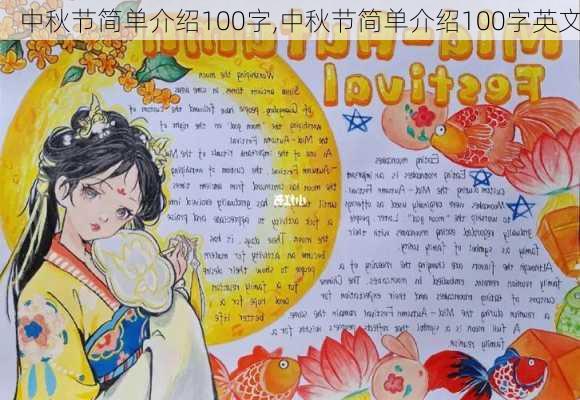 中秋节简单介绍100字,中秋节简单介绍100字英文
Mid-Autumn
Festival
Worshiping the moon
Since ancient times in some areas
of Guangdong, people have followed the custom of
worshiping the moon god on the night of
the Mid-Autumn Festival
As one of the important rituals of the Mid-
Autumn Festival, the custom of worshiping
the moon has continued from ancient times
until today and has gradually evolved into
a folk activity to appreciate and praise
the moon. These days, it has
become an activity for modern
people to show their desire
for a family reunion
and hope for a
better life
小红书
Eating mooncakes
Eating mooncakes is an important
custom during the Mid-Autumn Festival
Mooncakes were originally used as offering
to worship to the "moon god". Later, people
gradually regarded eating mooncakes with their
family as symbol of family unity.
Although the flavors are changing the meaning of a
family reunion remain embodied in mooncakes. The Chinese
customs of eating mooncakes and their expectation for
a reunion during the Mid-Autumn Festival remain the same.
A full moon is a symbol that reflects people's wishes for
family reunion.